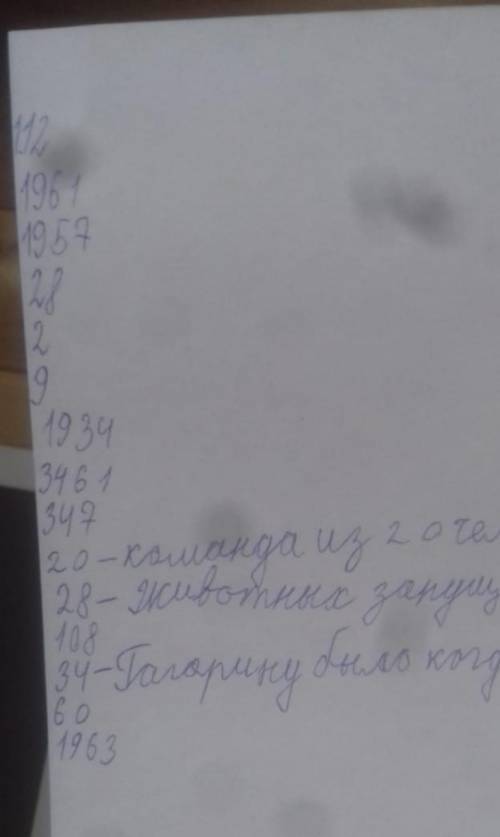 112
1961
1957
28
2
9
1934
3461
347
20 - команда из 20 чел
28 - Животных запущ
108
34 - Гагарину было когд
60
1963